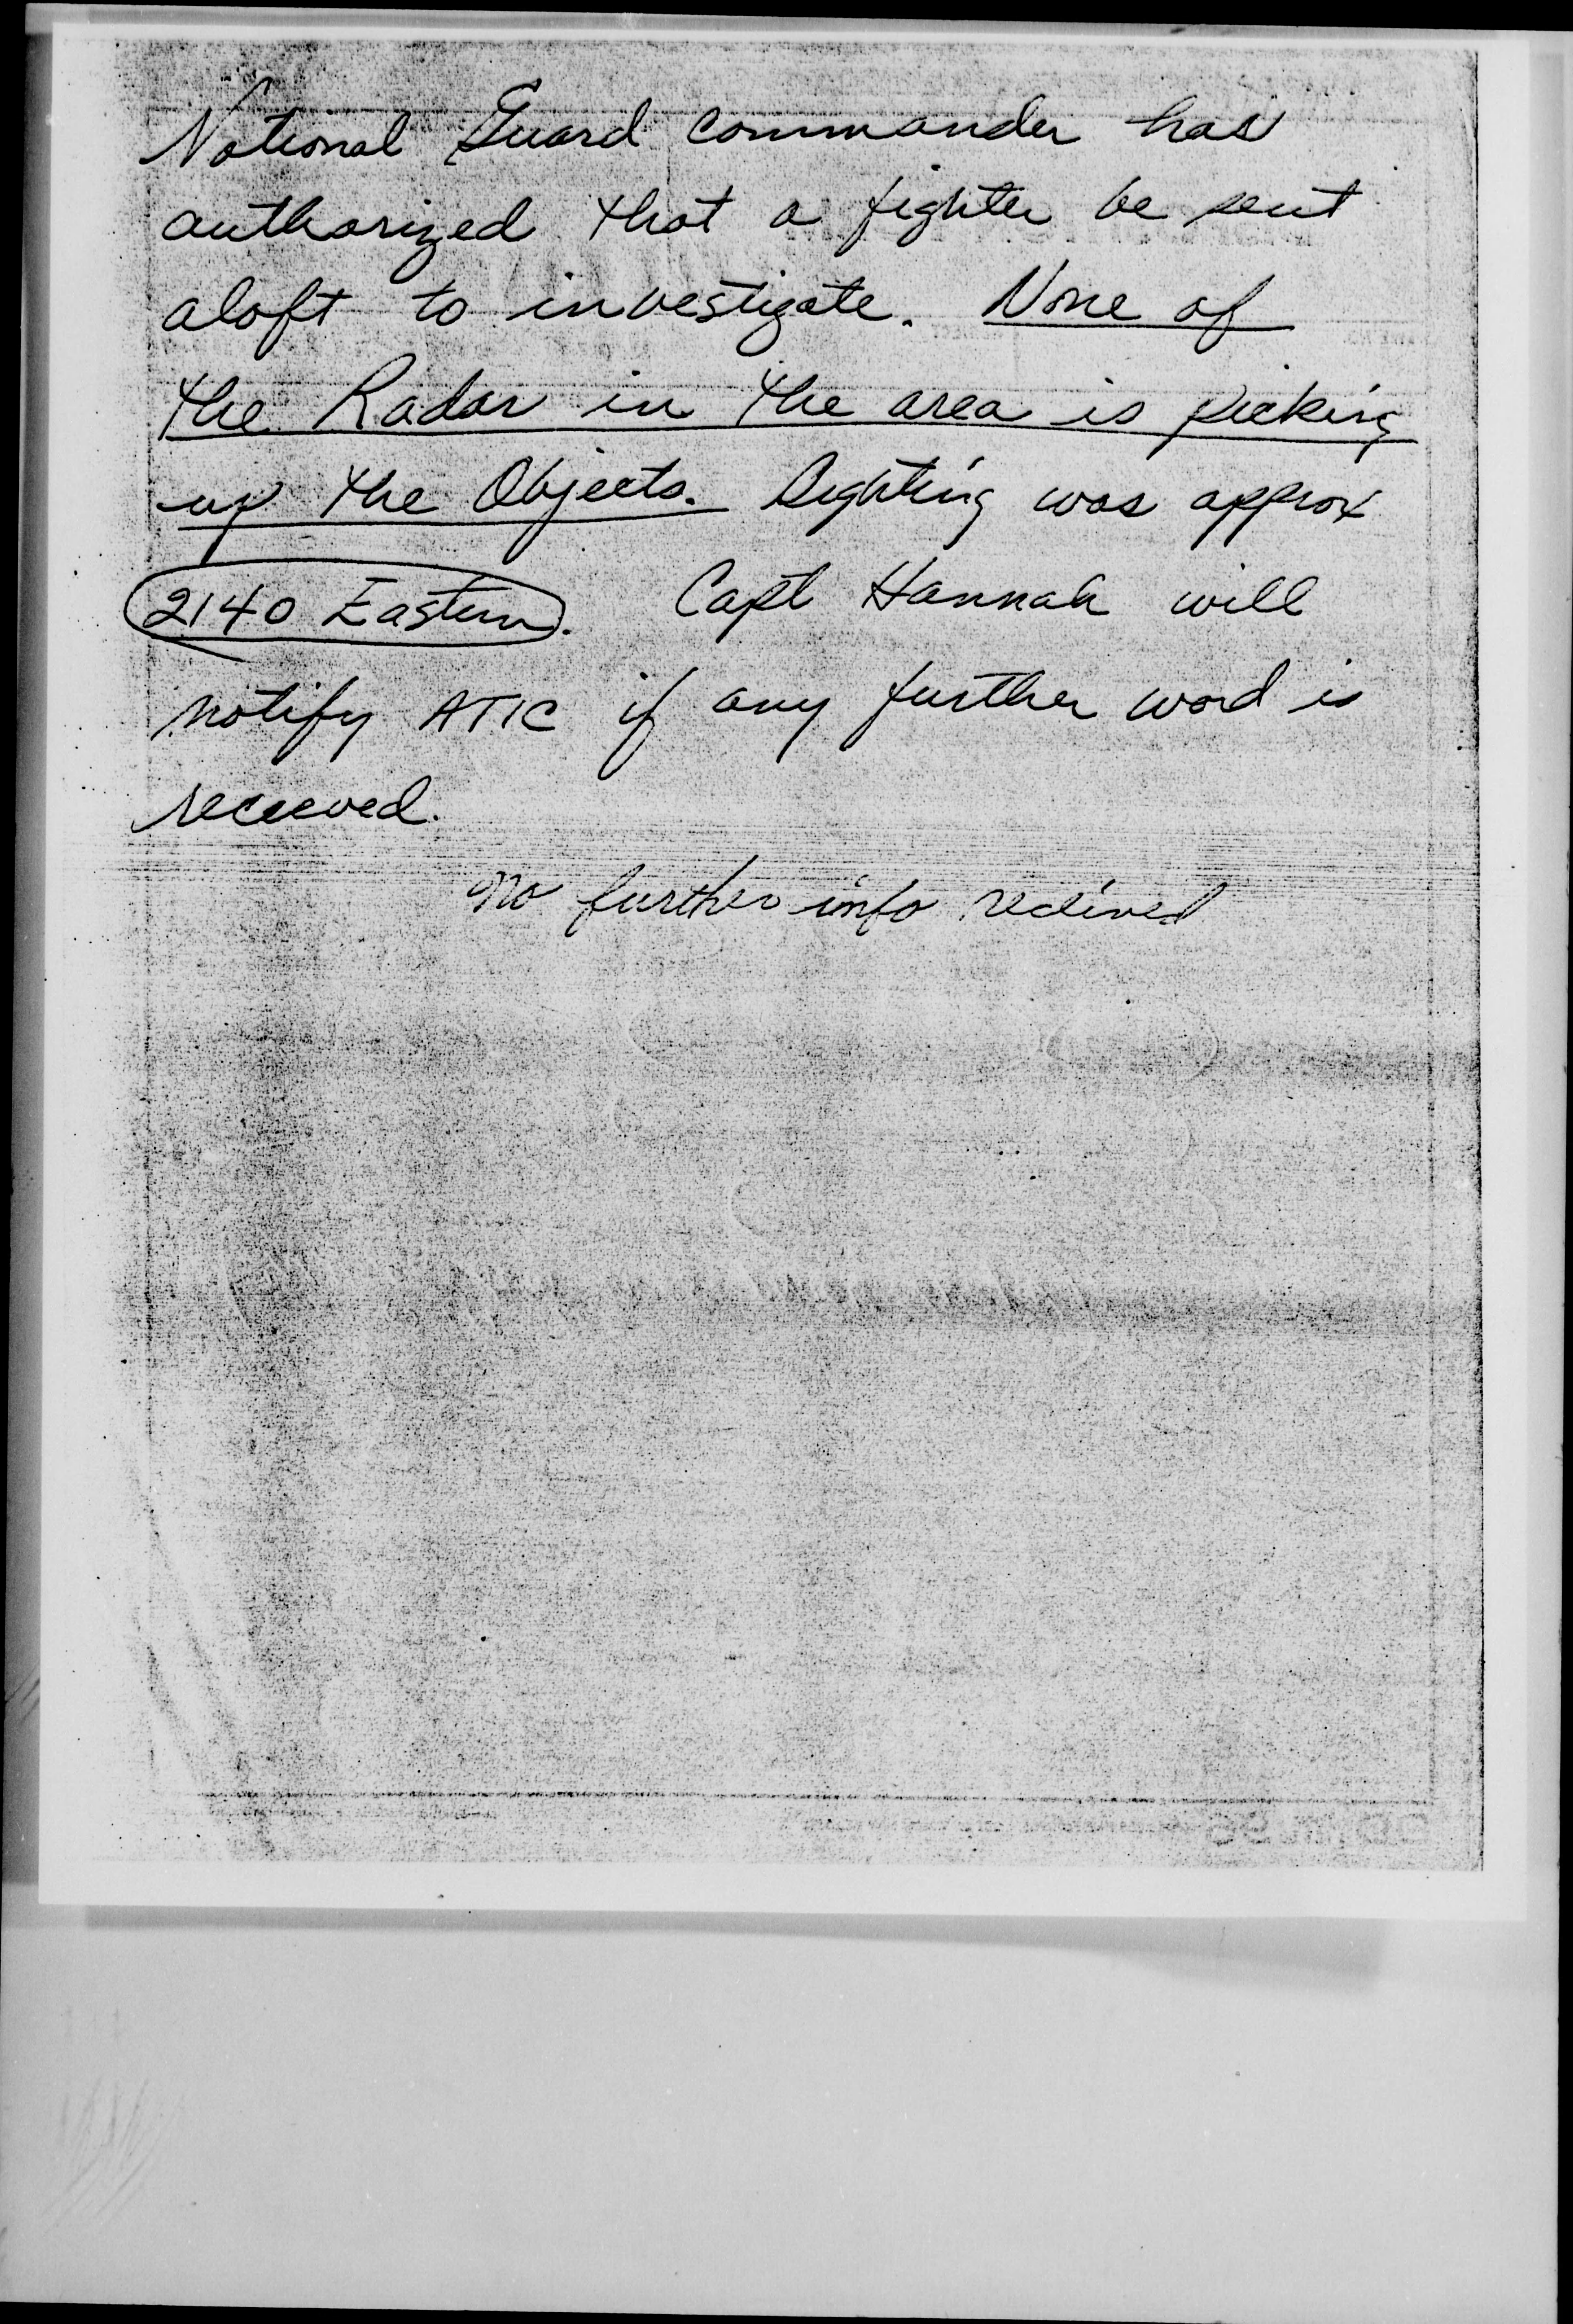 National Guard Commander has
authorized that a fighter be sent
aloft to investigate. None of
the Radar in the area is picking
up the Objects. Sighting was approx
2140 Eastern. Capt Hannah will
notify ATIC if any further word is
received.
No further info received